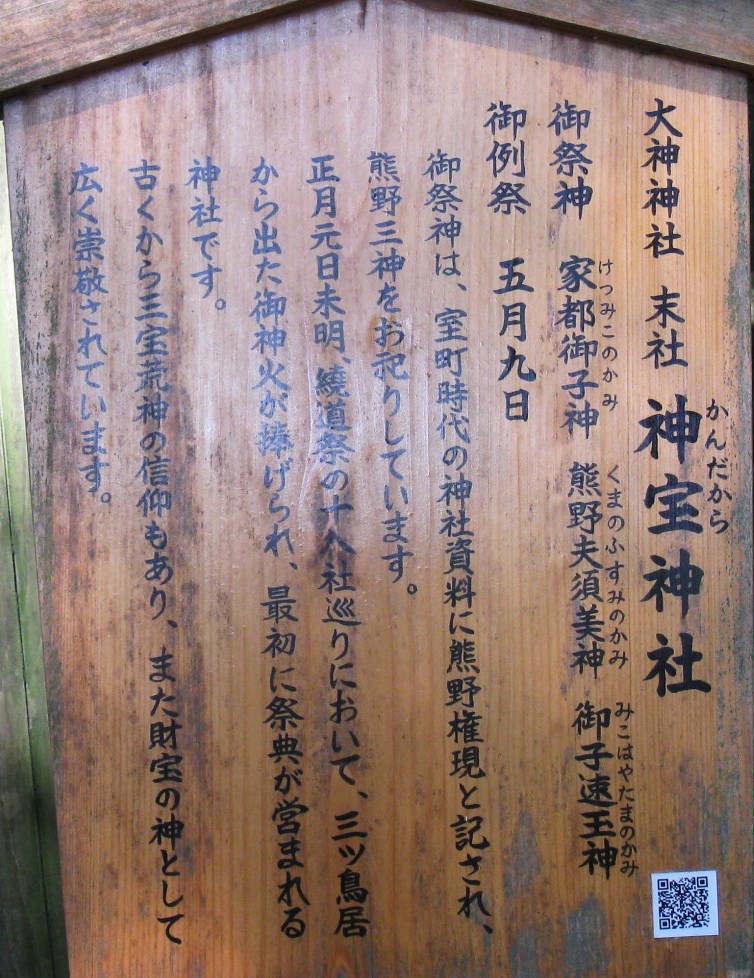 大神神社 末社 神宝神社
かんだから
御祭神 家都御子神 熊野夫須美神 御子速玉神
けつみこのかみ くまのふすみのかみ みこはやたまのかみ
御例祭 五月九日
御祭神は、室町時代の神社資料に熊野権現と記され、
熊野三神をお祀りしています。
正月元日未明、繞道祭の十八社巡りにおいて、三ツ鳥居
から出た御神火が捧げられ、最初に祭典が営まれる
神社です。
古くから三宝荒神の信仰もあり、また財宝の神として
広く崇敬されています。